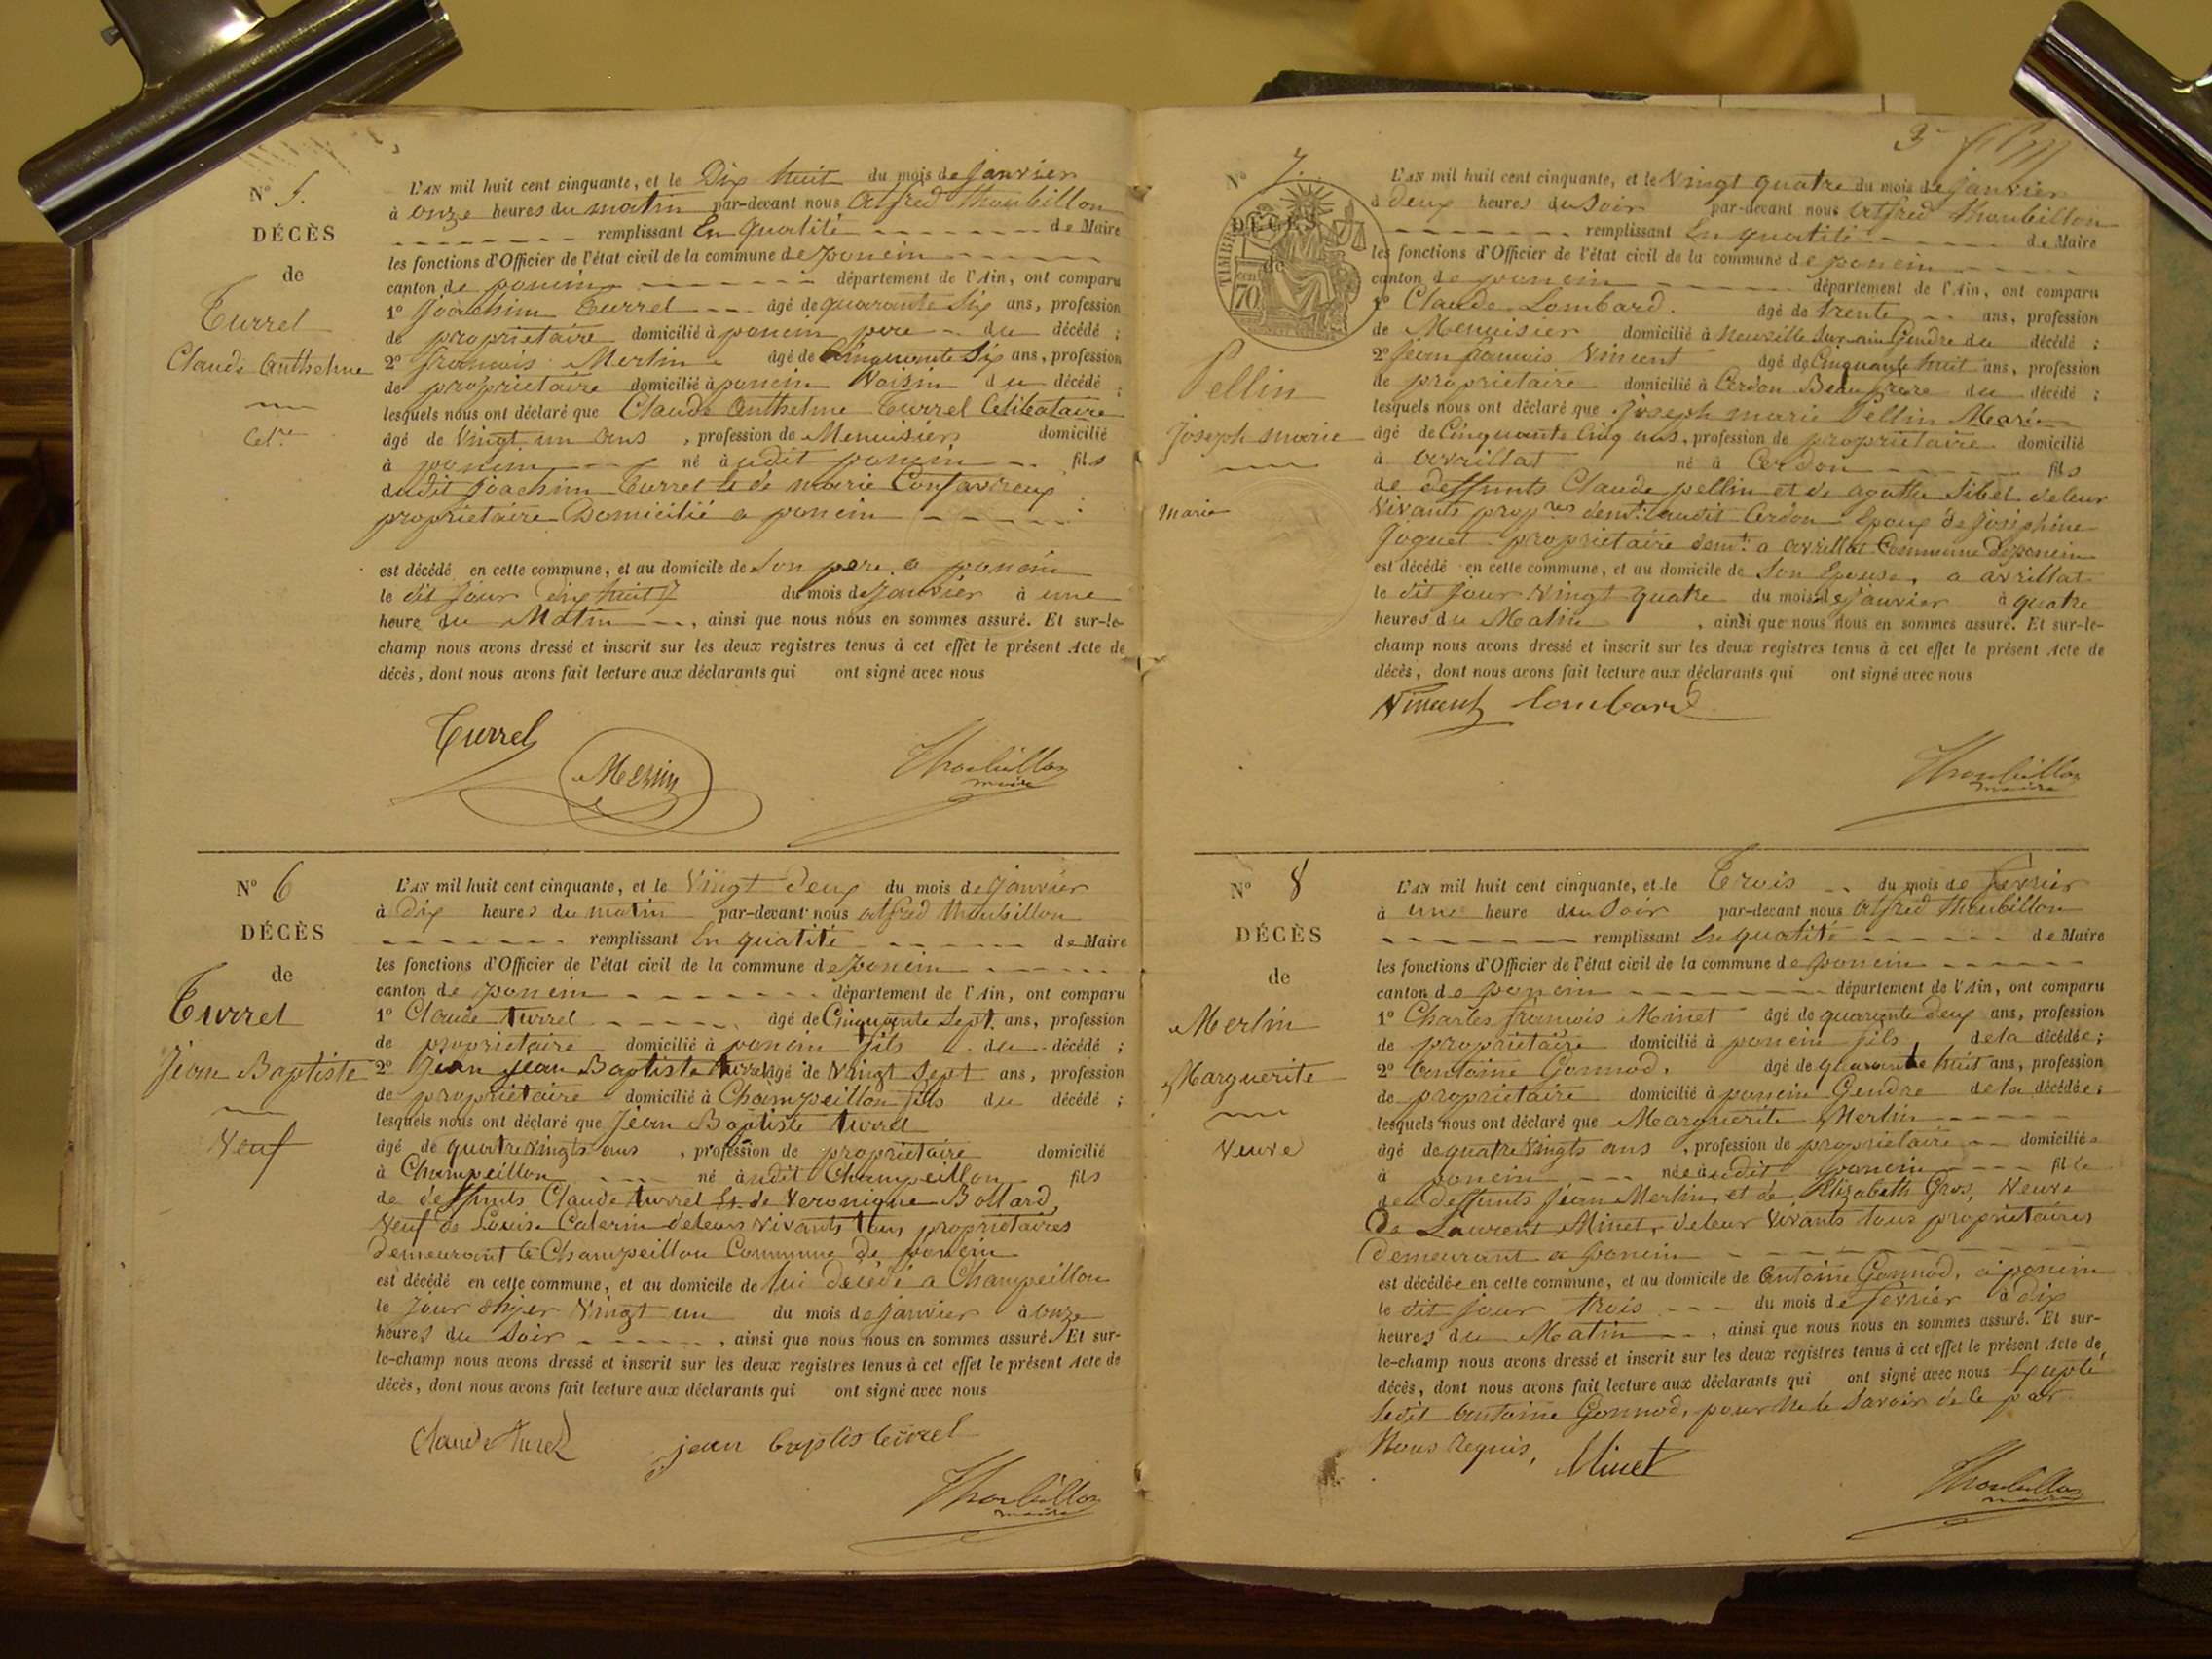 N° 5.
DÉCÈS
de
Turrel
Claude Anthelme
Cel.re
L'AN mil huit cent cinquante, et le Dix huit du mois de janvier
à onze heures du matin par-devant nous alfred thoubillon
remplissant En qualité de Maire
les fonctions d'Officier de l'état civil de la commune de poncin
canton de poncin département de l'Ain, ont comparu
1° Joachim Turrel âgé de quarante Six ans, profession
de propriétaire domicilié à poncin pere du décédé ;
2° françois Merlin âgé de Cinquante Six ans, profession
de propriétaire domicilié à poncin Voisin du décédé ;
lesquels nous ont déclaré que Claude Anthelme Turrel Celibataire
âgé de Vingt un ans , profession de Menuisier domicilié
à poncin né à udit poncin fils
dudit Joachim Turrel et de marie
propriétaire Domicilié a poncin
est décédé en cette commune, et au domicile de Son pere a poncin
le dit jour dix huit du mois de janvier à une
heure du Matin , ainsi que nous nous en sommes assuré. Et sur-le-
champ nous avons dressé et inscrit sur les deux registres tenus à cet effet le présent Acte de
décès, dont nous avons fait lecture aux déclarants qui ont signé avec nous
Turrel
Merlin
Thoubillon
maire
N° 6
DÉCÈS
de
Turrel
Jean Baptiste
Veuf
L'AN mil huit cent cinquante, et le Vingt deux du mois de janvier
à dix heures du matin par-devant nous alfred thoubillon
remplissant En qualité de Maire
les fonctions d'Officier de l'état civil de la commune de poncin
canton de poncin département de l'Ain, ont comparu
1° Claude turrel âgé de Cinquante Sept ans, profession
de propriétaire domicilié à poncin fils du décédé ;
2° Jean jean Baptiste turrel âgé de Vingt Sept ans, profession
de propriétaire domicilié à Champeillon fils du décédé ;
lesquels nous ont déclaré que Jean Baptiste turrel
âgé de quatrevingts ans , profession de propriétaire domicilié
à Champeillon né à udit Champeillon fils
de deffunts Claude turrel Et de Veronique Bollard,
Veuf de Louise Calerin deleurs vivants tous propriétaires
Demeurant à Champeillon Commune de poncin
est décédé en cette commune, et au domicile de lui décédé a Champeillon
le jour d'hier Vingt un du mois de janvier à onze
heures du Soir , ainsi que nous nous en sommes assuré. Et sur-
le-champ nous avons dressé et inscrit sur les deux registres tenus à cet effet le présent Acte de
décès, dont nous avons fait lecture aux déclarants qui ont signé avec nous
Claude turel
jean baptis turrel
Thoubillon
maire
3
N° 7.
DÉCÈS
de
TIMBRE
70
Pellin
Joseph marie
marié
L'AN mil huit cent cinquante, et le Vingt quatre du mois de janvier
à deux heures du Soir par-devant nous alfred thoubillon
remplissant En qualité de Maire
les fonctions d'Officier de l'état civil de la commune de poncin
canton de poncin département de l'Ain, ont comparu
1° Claude Lombard. âgé de trente ans, profession
de Menuisier domicilié à Neuville Sur ain Gendre du décédé ;
2° jean françois Vincent âgé de Cinquante huit ans, profession
de propriétaire domicilié à Cerdon Beau frere du décédé ;
lesquels nous ont déclaré que Joseph marie Pellin Marié
âgé de Cinquante Cinq ans, profession de propriétaire domicilié
à avrillat né à Cerdon fils
de deffunts Claude pellin et de agathe Sibet deleur
Vivants prop.res dem.t audit Cerdon Epoux de Joséphine
Joguet propriétaire dem.t a avrillat Commune De poncin
est décédé en cette commune, et au domicile de Son Epouse, a avrillat
le dit jour Vingt quatre du mois de janvier à quatre
heures du Matin , ainsi que nous nous en sommes assuré. Et sur-le-
champ nous avons dressé et inscrit sur les deux registres tenus à cet effet le présent Acte de
décès, dont nous avons fait lecture aux déclarants qui ont signé avec nous
Vincent Lombard
Thoubillon
maire
N° 8
DÉCÈS
de
Merlin
Marguerite
Veuve
L'AN mil huit cent cinquante, et le Trois du mois de fevrier
à une heure du Soir par-devant nous alfred thoubillon
remplissant En qualité de Maire
les fonctions d'Officier de l'état civil de la commune de poncin
canton de poncin département de l'Ain, ont comparu
1° Charles françois Minet âgé de quarante deux ans, profession
de propriétaire domicilié à poncin fils de la décédée ;
2° Antoine Gonnod. âgé de quarante huit ans, profession
de propriétaire domicilié à poncin Gendre de la décédée ;
lesquels nous ont déclaré que Marguerite Merlin
âgé de quatre Vingts ans , profession de propriétaire domiciliée
à poncin née à udit poncin fille
de Deffunts Jean Merlin, et de Elizabeth Gros, Veuve
De Laurent Minet, deleur Vivants tous propriétaires
Demeurant a poncin
est décédée en cette commune, et au domicile de Antoine Gonnod, a poncin
le dit jour trois du mois de fevrier à dix
heures du Matin , ainsi que nous nous en sommes assuré. Et sur-
le-champ nous avons dressé et inscrit sur les deux registres tenus à cet effet le présent Acte de
décès, dont nous avons fait lecture aux déclarants qui ont signé avec nous Excepté
ledit Antoine Gonnod, pour ne le Savoir de ce par
Nous requis,
Minet
Thoubillon
maire